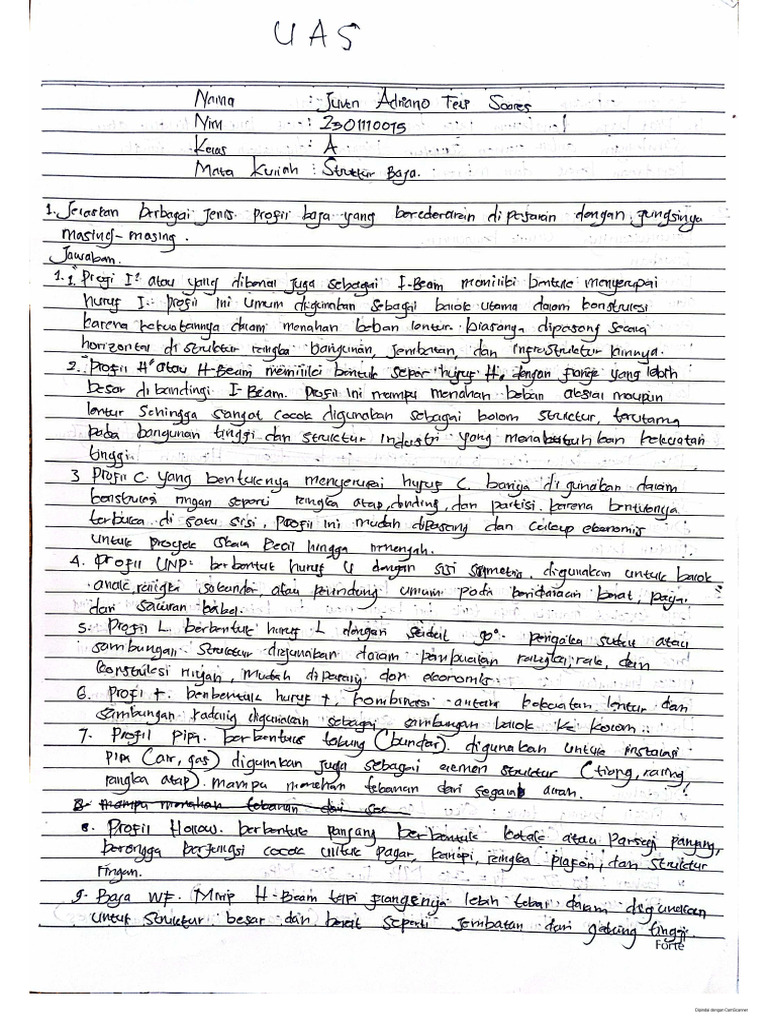 UAS
Nama : Juven Adriano Feip Soares
Nim : 2301110015
Kelas : A
Mata Kuliah : Struktur Baja.
1. Jelaskan berbagai jenis profil baja yang beredararn di pasaran dengan fungsinya
masing-masing.
Jawaban.
1. 1. "Profil I" atau yang dikenal juga sebagai I-Beam memiliki bentuk menyerupai
huruf I. profil ini umum digunakan sebagai balok utama dalam konstruksi
karena kekuatannya dalam menahan beban lentur. biasanya dipasang secara
horizontal di struktur rangka bangunan, jembatan, dan infrastruktur lainnya.
2. "Profil H" atau H-Beam memiliki bentuk seperi huruf H, dengan flange yang lebih
besar di bandingi I-Beam. Profil ini mampu menahan beban aksial maupun
lentur sehingga sangat cocok digunakan sebagai kolom struktur, terutama
pada bangunan tinggi dan struktur industri yang menabutuhkan kekuatan
tinggi.
3 Profil C. yang bentuknya menyerupai huruf C. banyak di gunakan dalam
konstruksi ringan seperi rangka atap, dinding, dan partisi. karena bentuknya
terbuka di satu sisi, profil ini mudah dipasang dan cukup ekonomis
untuk proyek skala kecil hingga menengah.
4. Profil UNP: berbentuk huruf U dengan sisi simetris. digunakan untuk balok
anak, rangka sekunder, atau pelindung umum pada kendaraan berat,
dan saluran kabel.
5. Profil L. berbentuk huruf L dengan sudut 90°. pengaku sudut atau
sambungan. struktur digunakan dalam pembuatan rangka, rak, dan
konstruksi ringan, mudah dipasang dan ekonomis.
6. Profil t. berbentuk huruf t, kombinasi antara kekuatan lentur dan
sambungan kadang digunakan sebagai sambungan balok ke kolom.
7. Profil pipa. berbentuk tabung (bundar). digunakan untuk instalasi
pipa (air, gas) digunakan juga sebagai elemen struktur (tiang, railing
rangka atap). mampu menahan tekanan dari segala arah.
8. mampu menahan tekanan dari
8. Profil Hollow. berbentuk panjang berbentuk kotak atau persegi panjang,
berongga berfungsi cocok untuk pagar, kanopi, rangka plafon, dan struktur
ringan.
9. Baja WF. Mirip H-Beam tapi flangenya lebih tebal dalam digunakan
untuk struktur besar dan berat seperti jembatan dan gedung tinggi.
Forte
Dipindai dengan CamScanner